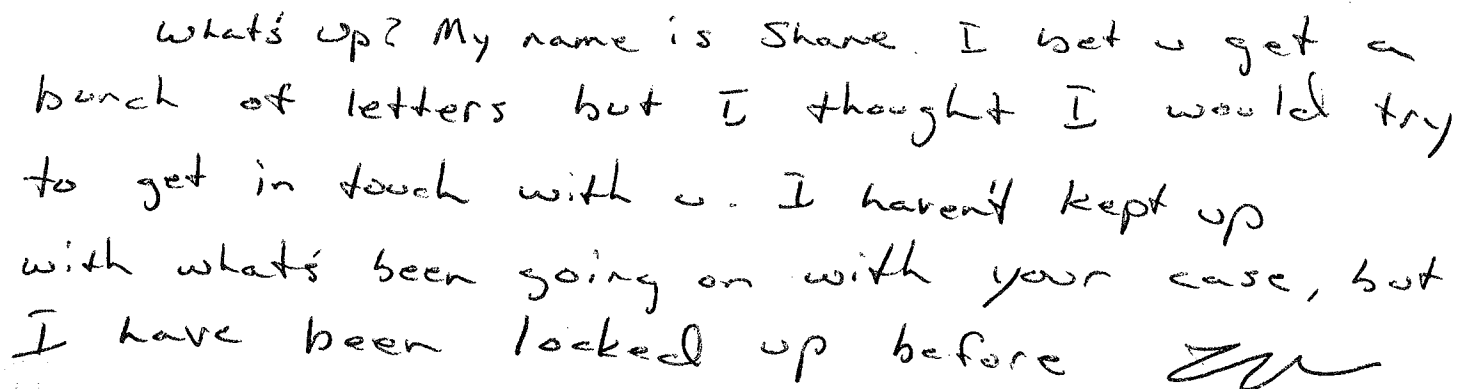 What's up? My name is Shane. I bet u get a
bunch of letters but I thought I would try
to get in touch with u. I haven't kept up
with what's been going on with your case, but
I have been locked up before